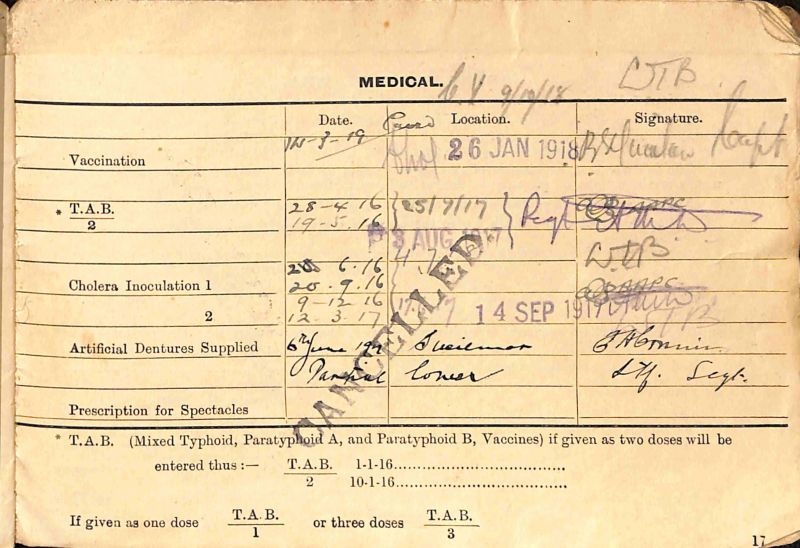 MEDICAL. 9/10/18 WTB
Date. Location. Signature.
Vaccination 14-3-19 26 JAN 1918 Capt
* T.A.B. 28-4-16 25/7/17
2 19-5-16 3 AUG 1917
WTB
6.16
Cholera Inoculation 1 20.9.16
9-12-16
2 12.3.17 14 SEP 1917
Artificial Dentures Supplied 6th June
Partial Lower
Prescription for Spectacles
CANCELLED
* T.A.B. (Mixed Typhoid, Paratyphoid A, and Paratyphoid B, Vaccines) if given as two doses will be
entered thus :— T.A.B. 1-1-16
2 10-1-16
If given as one dose T.A.B. or three doses T.A.B.
1 3
17